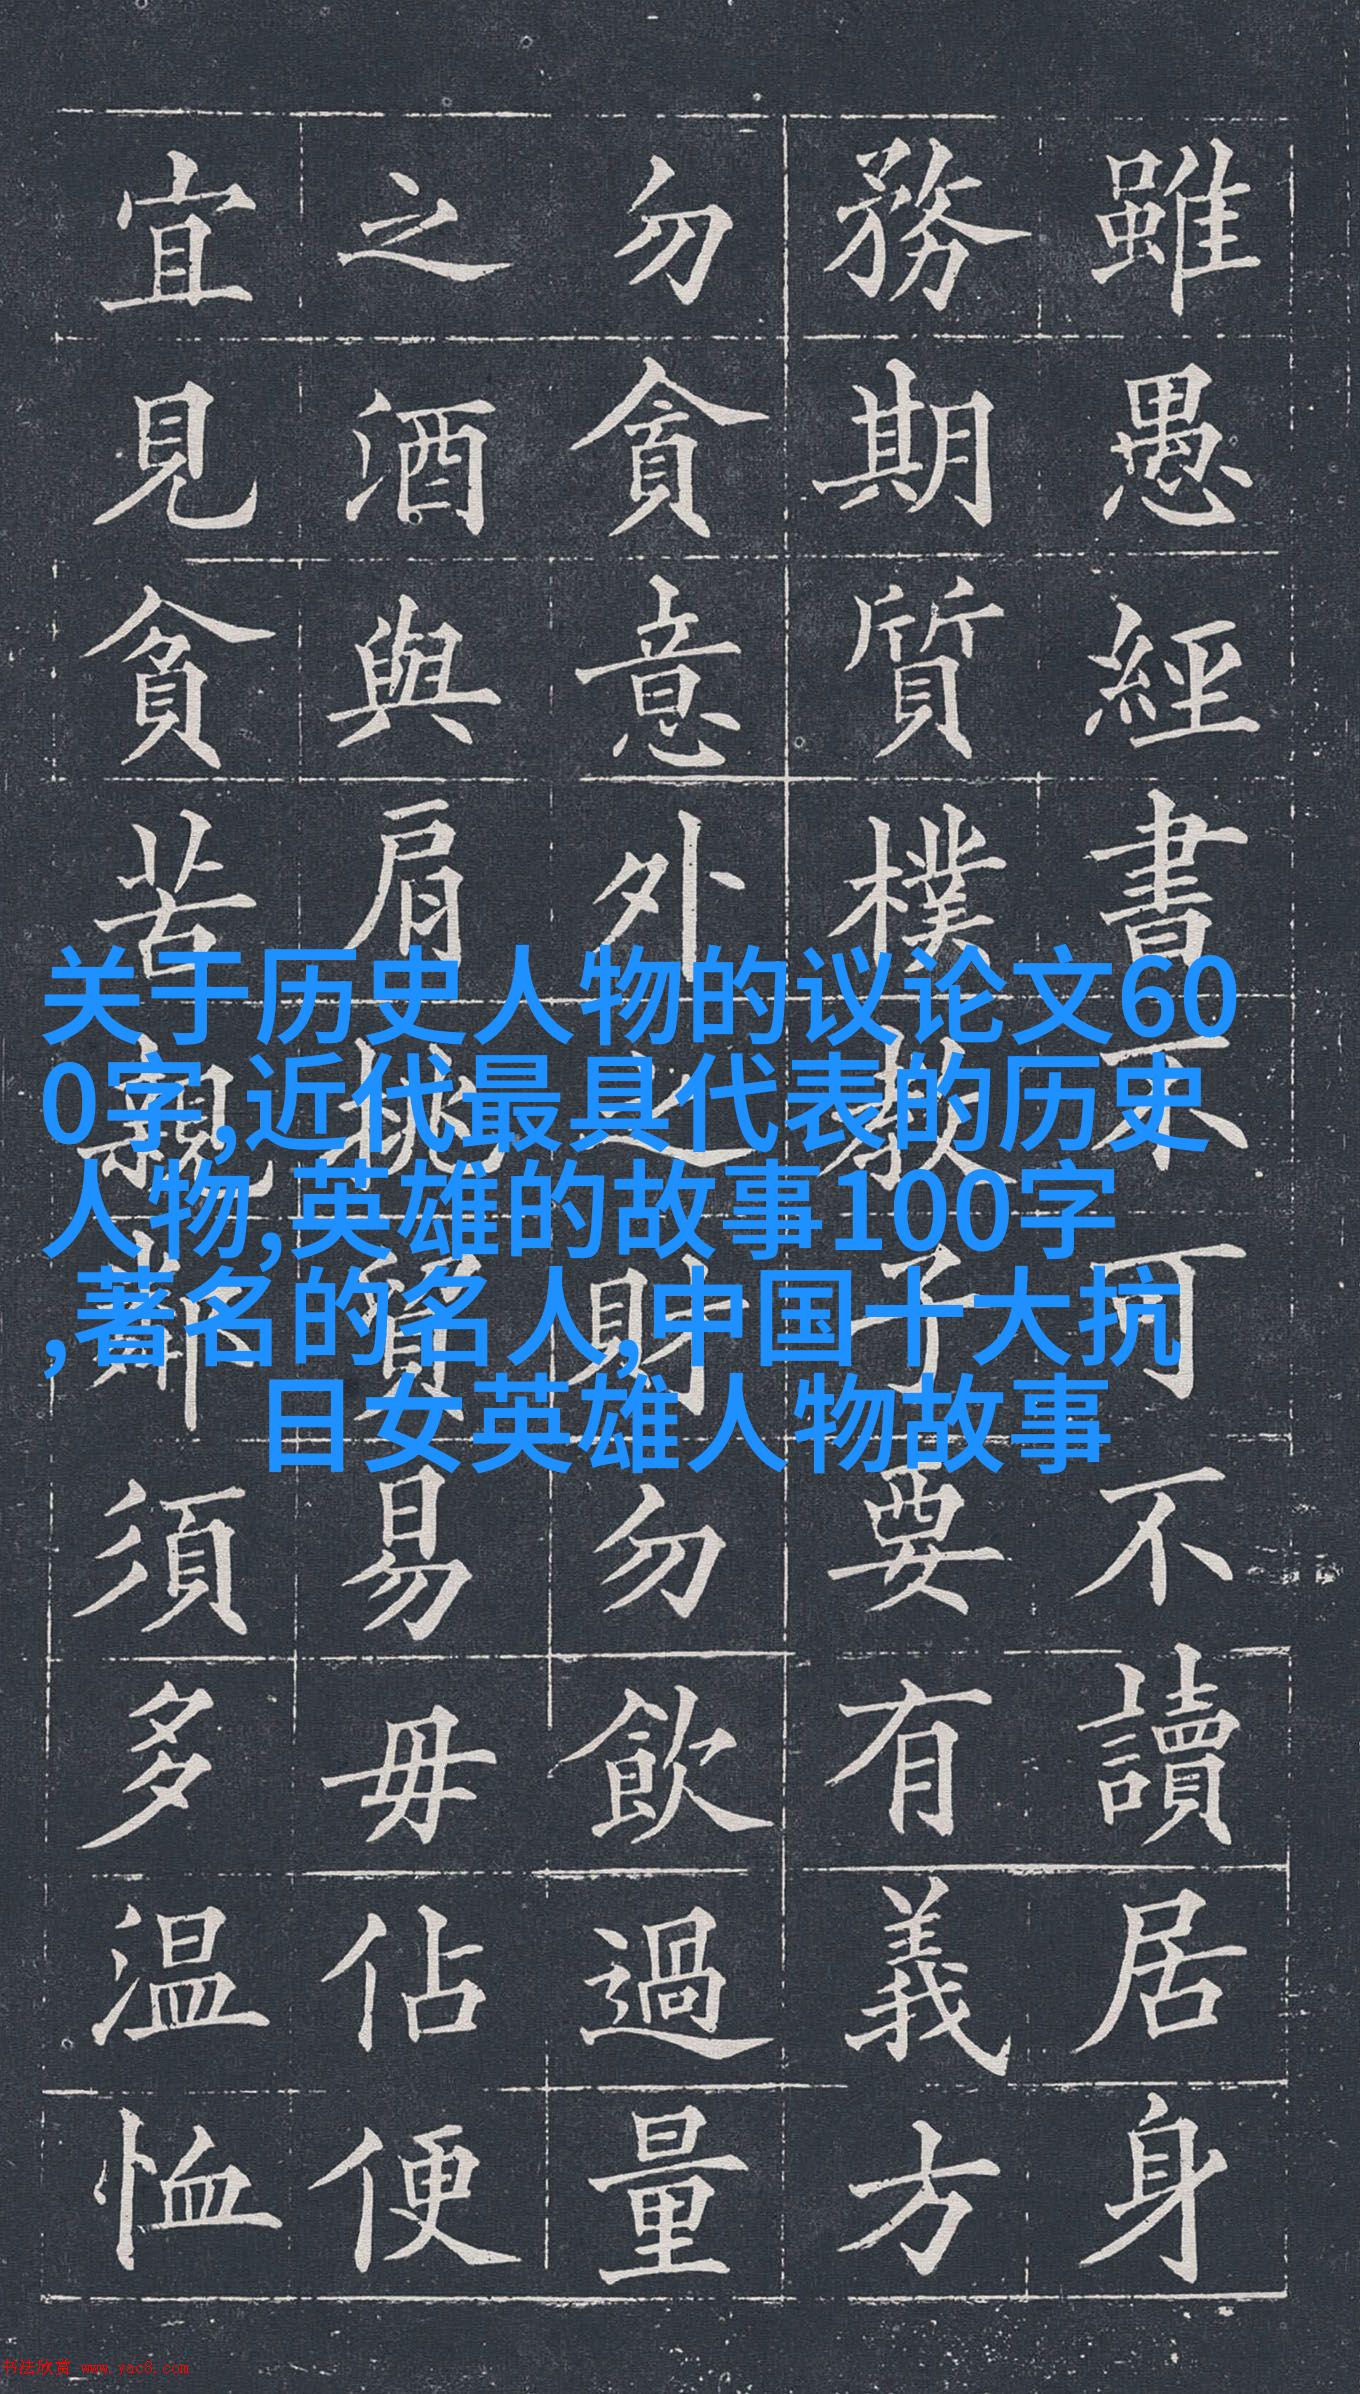 雖愚經書不可不讀居身
務期質樸教子要有義方
勿貪意外之財勿飲過量
之酒與肩挑貿易毋佔便
宜見貧苦親鄰須多温恤
关于历史人物的议论文60
0字,近代最具代表的历史
人物,英雄的故事100字
,著名的名人,中国十大抗
日女英雄人物故事
书法欣赏 www.yac8.com